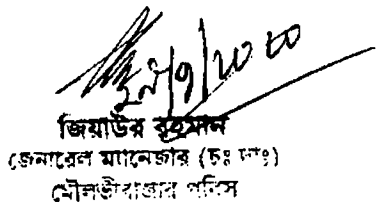 জিয়াউর রহমান
জেনারেল ম্যানেজার (চঃ দাঃ)
মৌলভীবাজার পবিস